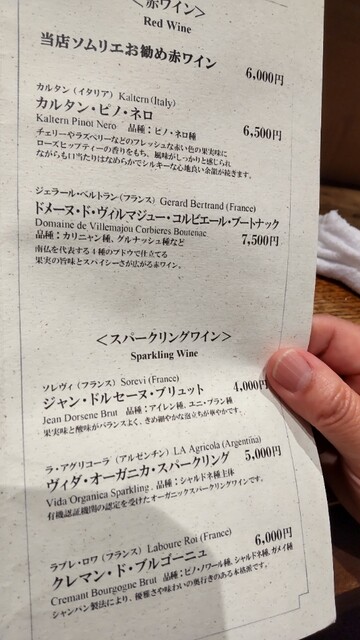 ＜赤ワイン＞
Red Wine
当店ソムリエお勧め赤ワイン
6,000円
カルタン（イタリア）Kaltern (Italy)
カルタン・ピノ・ネロ
Kaltern Pinot Nero 品種：ピノ・ネロ種 6,500円
チェリーやラズベリーなどのフレッシュな赤い色の果実味に
ローズヒップティーの香りをもち、風味がしっかりと感じられ
ながらも口当たりはなめらかでシルキーな心地良い余韻が続きます。
ジェラール・ベルトラン（フランス）Gerard Bertrand (France)
ドメーヌ・ド・ヴィルマジュー・コルビエール・ブートナック
Domaine de Villemajou Corbieres Boutenac
品種：カリニャン種、グルナッシュ種など 7,500円
南仏を代表する4種のブドウで仕立てる
果実の旨味とスパイシーさが広がる赤ワイン。
＜スパークリングワイン＞
Sparkling Wine
ソレヴィ（フランス）Sorevi (France)
ジャン・ドルセーヌ・ブリュット 4,000円
Jean Dorsene Brut 品種：アイレン種、ユニ・ブラン種
果実味と酸味がバランスよく、きめ細やかな泡立ちが華やかです。
ラ・アグリコーラ（アルゼンチン）LA Agricola (Argentina)
ヴィダ・オーガニカ・スパークリング 5,000円
Vida Organica Sparkling 品種：シャルドネ種主体
有機認証機関の認定を受けたオーガニックスパークリングワインです。
ラブレ・ロワ（フランス）Laboure Roi (France)
クレマン・ド・ブルゴーニュ 6,000円
Cremant Bourgogne Brut 品種：ピノ・ノワール種、シャルドネ種、ガメイ種
シャンパン製法により、優雅さや味わいの奥行きのある本格派です。